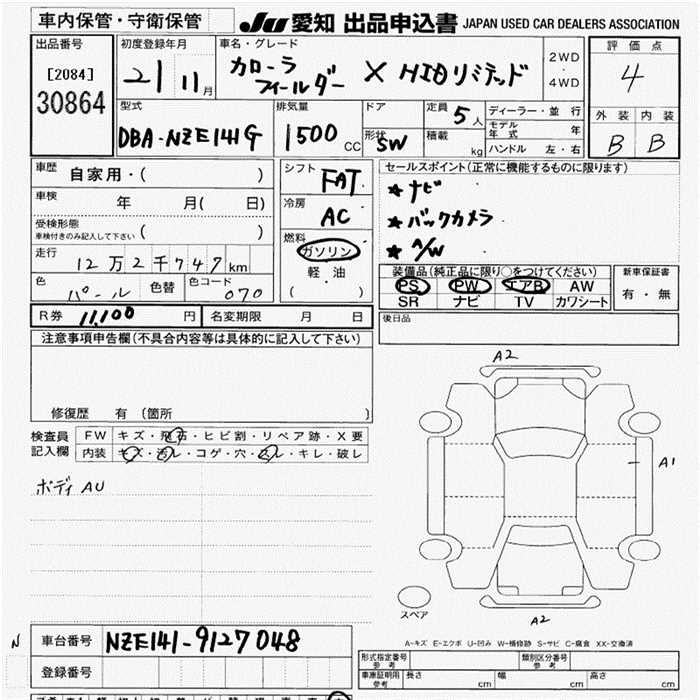 車内保管・守衛保管
JU 愛知 出品申込書 JAPAN USED CAR DEALERS ASSOCIATION
出品番号
[2084]
30864
初度登録年月
21 11月
車名・グレード
カローラ
フィールダー X HIDリミテッド
2WD
・
4WD
評価点
4
外装 内装
B B
型式
DBA-NZE141G
排気量
1500 CC
ドア
形状 SW
定員 5人
積載 kg
ディーラー・並行
モデル年式 年
ハンドル 左・右
車歴 自家用・( )
車検 年 月( 日)
受検形態
車検付きのみ記入して下さい ( )
走行 12万2千747km
色 パール 色替 色コード 070
シフト FAT
冷房 AC
燃料
ガソリン
軽油
( )
セールスポイント(正常に機能するものに限ります)
★ナビ
★バックカメラ
★A/W
装備品(純正品に限り○をつけてください)
PS PW エアB AW
SR ナビ TV カワシート
新車保証書
有・無
R券 11,100円 名変期限 月 日
後日品
注意事項申告欄(不具合内容等は具体的に記入して下さい)
修復歴 有 〔箇所 〕
検査員
記入欄
FW キズ・飛石・ヒビ割・リペア跡・X要
内装 キズ・汚レ・コゲ・穴・スレ・キレ・破レ
ボディ AU
A2
A1
スペア
A2
A-キズ E-エクボ U-凹み W-補修跡 S-サビ C-腐食 XX-交換済
N
車台番号 NZE141-9127048
登録番号
形式指定番号
参考
類別区分番号
参考
車庫証明用
参考
長さ cm 幅 cm 高さ cm